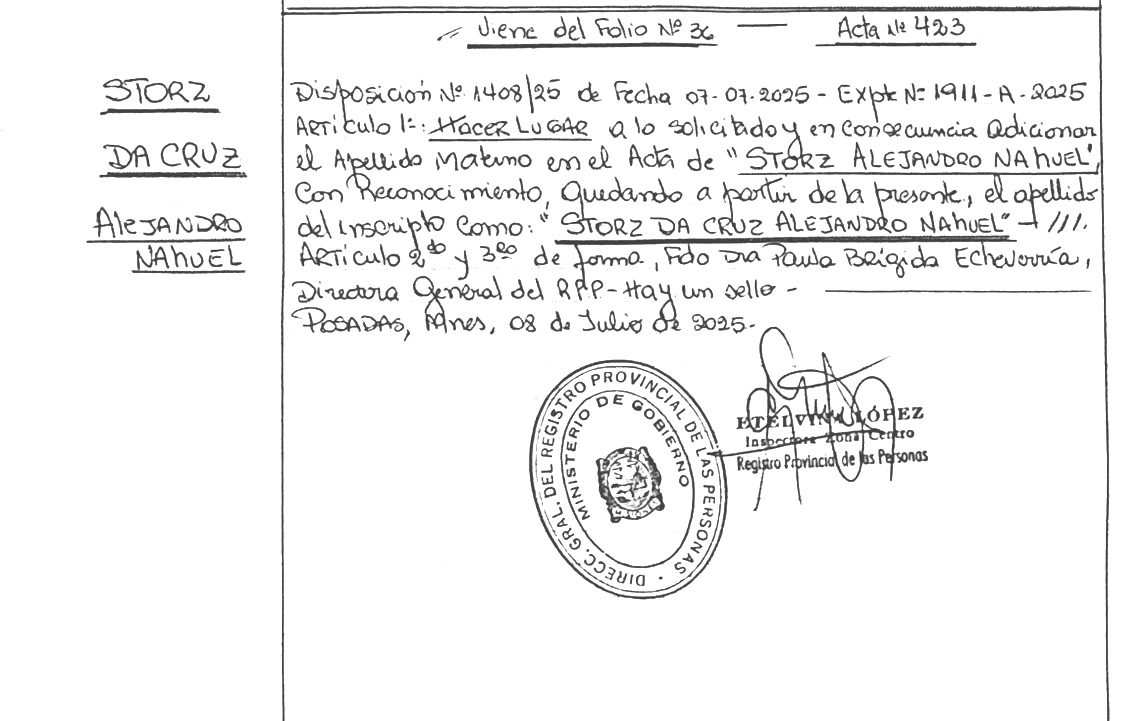 Viene del Folio Nº 36 — Acta Nº 423
STORZ
DA CRUZ
Alejandro
Nahuel
Disposición Nº 1408/25 de Fecha 07-07-2025 - Expte Nº 1911-A-2025
Artículo 1º: Hacer Lugar a lo solicitado y en Consecuencia Adicionar
el Apellido Materno en el Acta de "STORZ ALEJANDRO NAHUEL",
Con Reconocimiento, Quedando a partir de la presente, el apellido
del inscripto Como: "STORZ DA CRUZ ALEJANDRO NAHUEL" - ///.
Artículo 2do y 3ro de forma, Fdo Dra Paula Brígida Echeverría,
Directora General del RPP - Hay un sello -
Posadas, Mnes, 08 de Julio de 2025.-
DIRECC. GRAL. DEL REGISTRO PROVINCIAL DE LAS PERSONAS
MINISTERIO DE GOBIERNO
ETELVINA LÓPEZ
Inspectora Zona Centro
Registro Provincial de las Personas